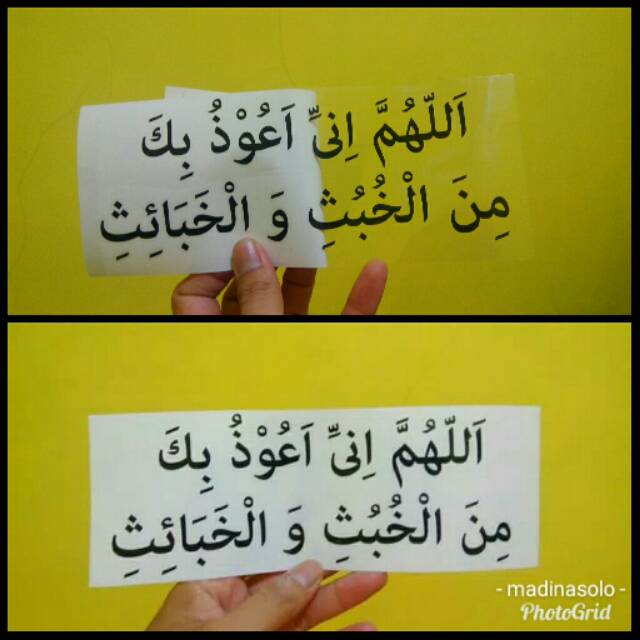 اَللّٰهُمَّ اِنىِّ اَعُوْذُ بِكَ
مِنَ الْخُبُثِ وَ الْخَبَائِثِ
اَللّٰهُمَّ اِنىِّ اَعُوْذُ بِكَ
مِنَ الْخُبُثِ وَ الْخَبَائِثِ
- madinasolo -
PhotoGrid